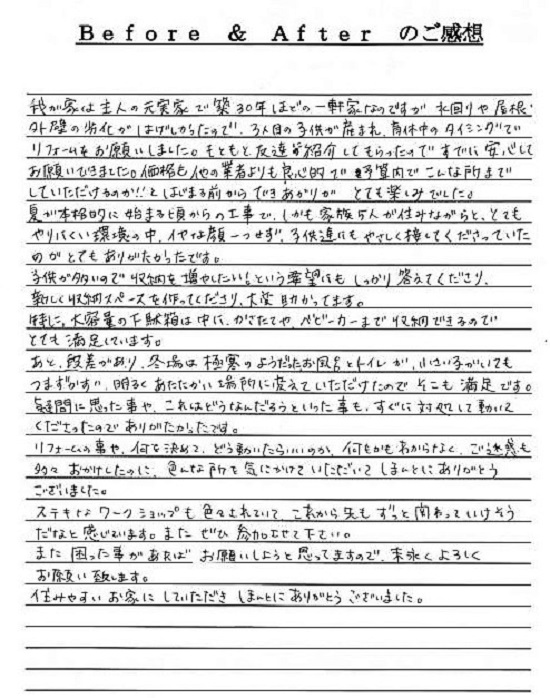 Before & After のご感想
我が家は主人の元実家で築30年ほどの一軒家なのですが 水回りや屋根・
外壁の劣化がはげしかったので、3人目の子供が産まれ、育休中のタイミングで
リフォームをお願いしました。もともと友達が紹介してもらったのですでに安心して
お願いできました。価格も他の業者よりも良心的で 予算内でこんな所まで
していただけるのか!!とはじまる前からできあがりが とても楽しみでした。
夏が本格的に始まる頃からの工事で、しかも家族5人が住みながらと、とても
やりにくい環境の中、イヤな顔一つせず、子供達にもやさしく接してくださっていた
のがとてもありがたかったです。
子供が多いので収納を増やしたい!という要望にもしっかり答えてくださり、
新しく収納スペースを作ってくださり、大変助かってます。
特に、大容量の下駄箱は中に、かさたてや、ベビーカーまで収納できるので
とても満足しています。
あと、段差があり、冬場は極寒のようだったお風呂とトイレが、小さい子がいても
つまずかず、明るくあたたかい場所に変えていただけたのでそこも満足です。
疑問に思った事や、これはどうなんだろうといった事も、すぐに対処して動いて
くださったのでありがたかったです。
リフォームの事や、何を決めて、どう動いたらいいのか、何もかもわからなく、ご迷惑も
多々おかけしたのに、色んな所を気にかけていただいてほんとにありがとう
ございました。
ステキなワークショップも色々されていて、これから先もずっと関わっていけそう
だなと感じています。またぜひ参加させて下さい。
また困った事があればお願いしようと思ってますので、末永くよろしく
お願い致します。
住みやすいお家にしていただきほんとにありがとうございました。